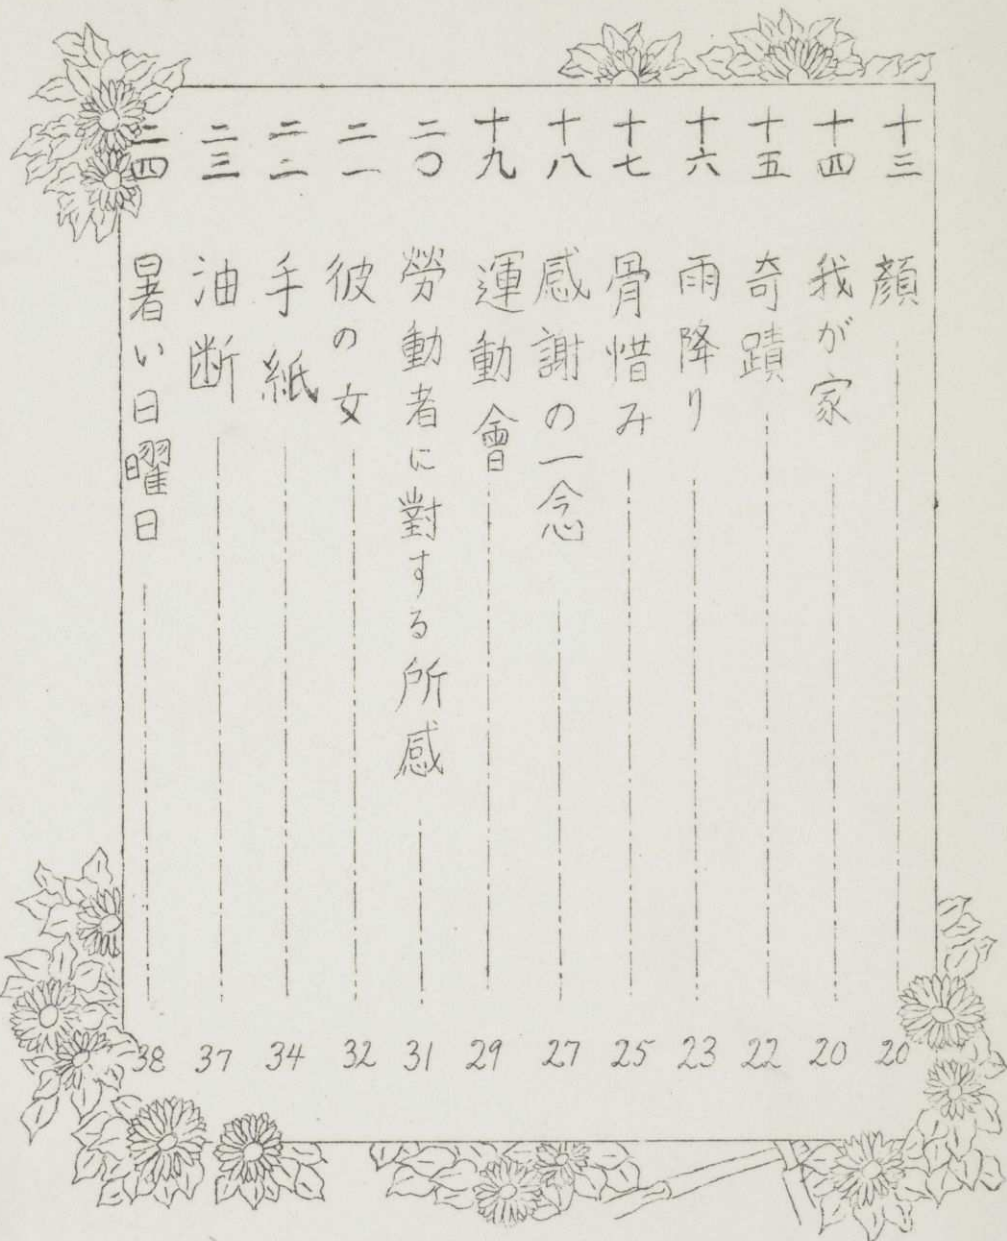 十三 顔 20
十四 我が家 20
十五 奇蹟 22
十六 雨降り 23
十七 骨惜み 25
十八 感謝の一念 27
十九 運動會 29
二〇 勞動者に對する所感 31
二一 彼の女 32
二二 手紙 34
二三 油断 37
二四 暑い日曜日 38